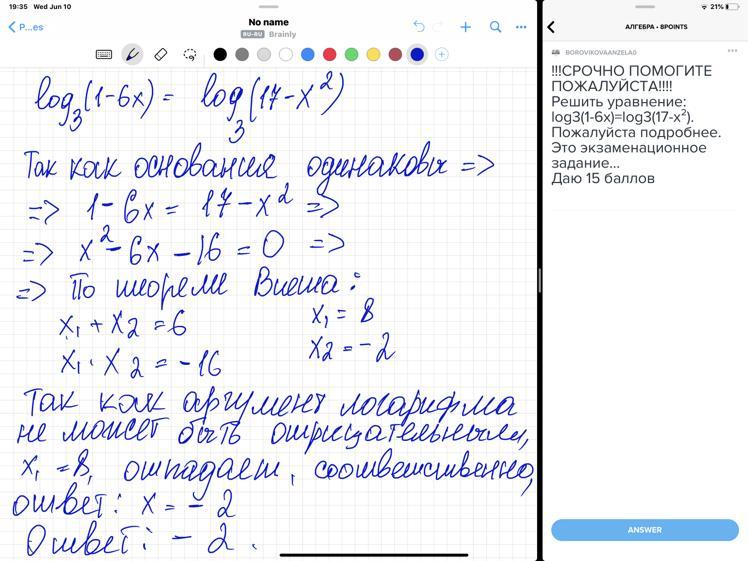 19:35 Wed Jun 10
21%
P...es
No name
RU-RU Brainly
log₃(1-6x) = log₃(17-x²)
Так как основания одинаковы =>
=> 1-6x = 17-x² =>
=> x²-6x-16=0 =>
=> По теореме Виета:
x₁+x₂=6
x₁=8
x₁·x₂=-16
x₂=-2
Так как аргумент логарифма
не может быть отрицательным,
x₁=8, отпадает, соответственно,
ответ: x=-2
Ответ: -2.
АЛГЕБРА • 8POINTS
BOROVIKOVAANZELA0
!!!СРОЧНО ПОМОГИТЕ
ПОЖАЛУЙСТА!!!!
Решить уравнение:
log3(1-6x)=log3(17-x²).
Пожалуйста подробнее.
Это экзаменационное
задание...
Даю 15 баллов
ANSWER